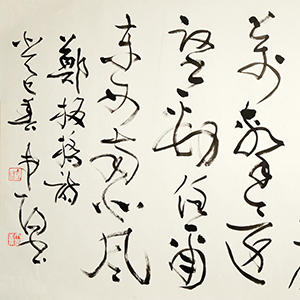 萬擊還
堅勁任爾
東西南北風
鄭板橋詩
癸巳春